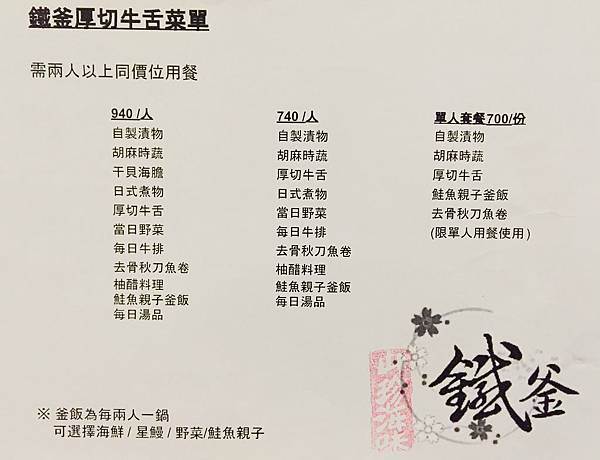 鐵釜厚切牛舌菜單
需兩人以上同價位用餐
940 /人
自製漬物
胡麻時蔬
干貝海膽
日式煮物
厚切牛舌
當日野菜
每日牛排
去骨秋刀魚卷
柚醋料理
鮭魚親子釜飯
每日湯品
740 /人
自製漬物
胡麻時蔬
厚切牛舌
日式煮物
當日野菜
每日牛排
去骨秋刀魚卷
柚醋料理
鮭魚親子釜飯
每日湯品
單人套餐700/份
自製漬物
胡麻時蔬
厚切牛舌
鮭魚親子釜飯
去骨秋刀魚卷
(限單人用餐使用)
※ 釜飯為每兩人一鍋
可選擇海鮮 / 星鰻 / 野菜/鮭魚親子
鐵釜